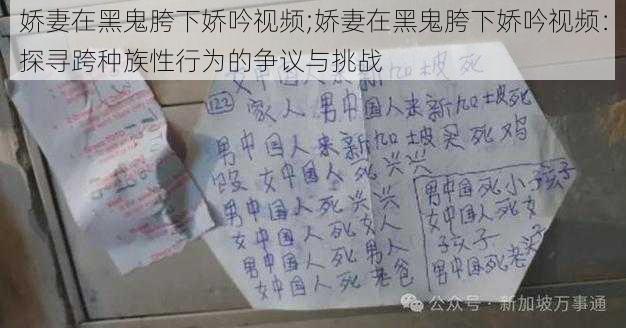 娇妻在黑鬼胯下娇吟视频;娇妻在黑鬼胯下娇吟视频：
探寻跨种族性行为的争议与挑战
女中国人来新加坡死
122 家人 男中国人来新加坡死
男中国人来新加坡买死鸡
女中国人死兴兴
男中国人死兴兴
女中国人死女人
男中国人死男人
女中国人死老爸
男中国死小子孩子
女中国人死女
子孩子
男中国死老头子
公众号・新加坡万事通